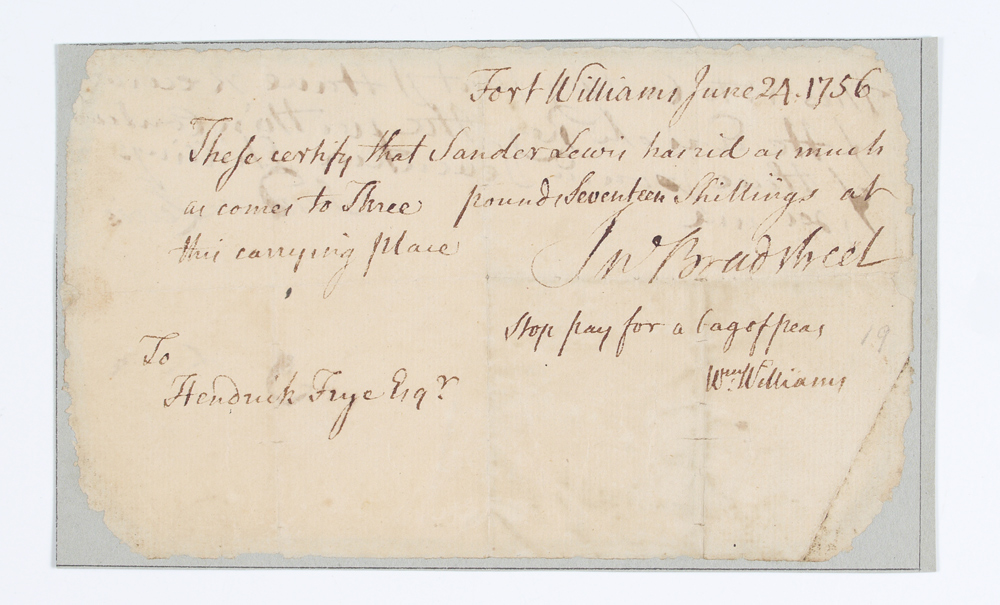 Fort Williams June 24. 1756
These certify that Sander Lewis has rid as much
as comes to Three pounds Seventeen Shillings at
this carrying place
Jno Bradstreet
Stop pay for a bag of peas
19
To
Wm. Williams
Hendrick Frye Esqr.